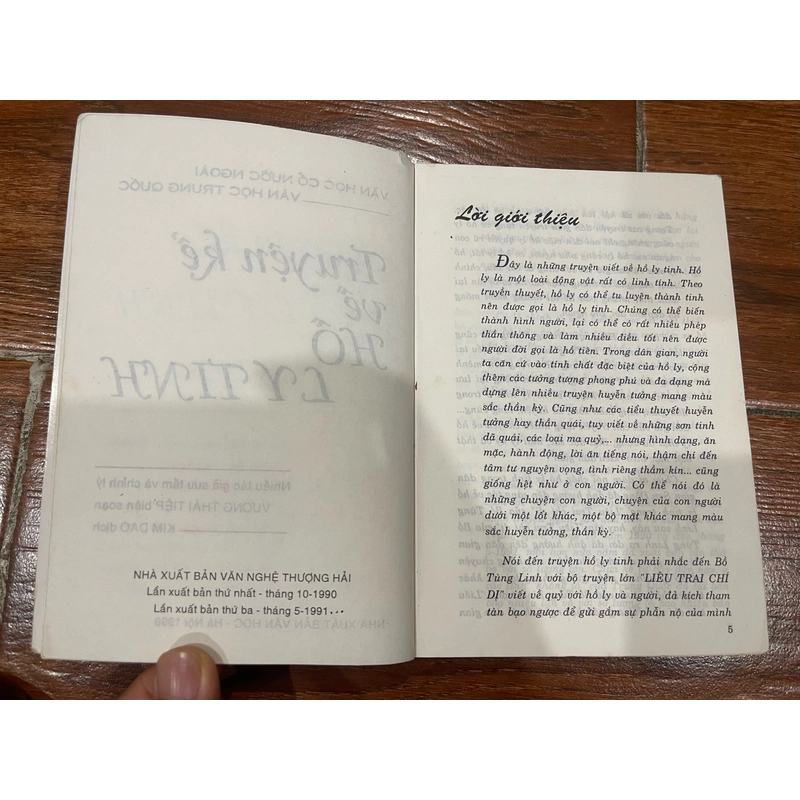 VĂN HỌC CỔ NƯỚC NGOÀI
VĂN HỌC TRUNG QUỐC
Truyện kể
về
HỒ
LY TINH
Nhiều tác giả sưu tầm và chỉnh lý
VƯƠNG THÁI TIỆP biên soạn
KIM DAO dịch
NHÀ XUẤT BẢN VĂN NGHỆ THƯỢNG HẢI
Lần xuất bản thứ nhất - tháng 10-1990
Lần xuất bản thứ ba - tháng 5-1991...
NHÀ XUẤT BẢN VĂN HỌC - Hà Nội 1999
Lời giới thiệu
Đây là những truyện viết về hồ ly tinh. Hồ
ly là một loài động vật rất có linh tính. Theo
truyền thuyết, hồ ly có thể tu luyện thành tinh
nên được gọi là hồ ly tinh. Chúng có thể biến
thành hình người, lại có thể có rất nhiều phép
thần thông và làm nhiều điều tốt nên được
người đời gọi là hồ tiên. Trong dân gian, người
ta căn cứ vào tính chất đặc biệt của hồ ly, cộng
thêm các tưởng tượng phong phú và đa dạng mà
dựng lên nhiều truyện huyễn tưởng mang màu
sắc thần kỳ. Cũng như các tiểu thuyết huyễn
tưởng hay thần quái, tuy viết về những sơn tinh
dã quái, các loại ma quỷ,... nhưng hình dạng, ăn
mặc, hành động, lời ăn tiếng nói, thậm chí đến
tâm tư nguyện vọng, tình riêng thầm kín... cũng
giống hệt như ở con người. Có thể nói đó là
những chuyện con người, chuyện của con người
dưới một lốt khác, một bộ mặt khác mang màu
sắc huyễn tưởng, thần kỳ.
Nói đến truyện hồ ly tinh phải nhắc đến Bồ
Tùng Linh với bộ truyện lớn "LIÊU TRAI CHÍ
DỊ" viết về quỷ với hồ ly và người, đả kích tham
tàn bạo ngược để gửi gắm sự phẫn nộ của mình
5